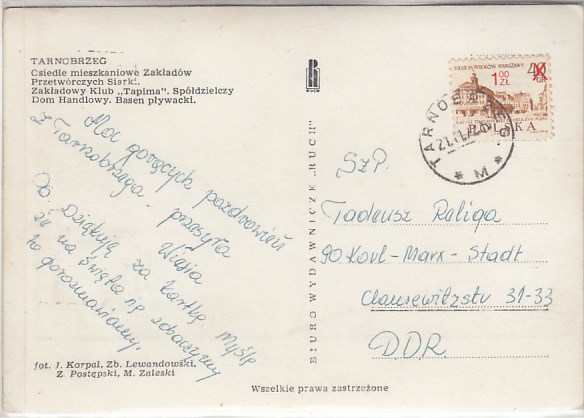 TARNOBRZEG
Osiedle mieszkaniowe Zakładów
Przetwórczych Siarki.
Zakładowy Klub „Tapima". Spółdzielczy
Dom Handlowy. Basen pływacki.
Moc gorących pozdrowień
z Tarnobrzega - przesyła
Wiesia
Ps. Dziękuję za kartkę Myślę
że na święta się zobaczymy
to porozmawiamy.
fot. J. Korpal, Zb. Lewandowski,
Z. Postępski, M. Zaleski
BIURO WYDAWNICZE „RUCH"
RUCH
1 00
ZŁ
40
GR
POLSKA
TARNOBRZEG
* M *
Szp.
Tadeusz Raliga
90 Karl - Marx - Stadt
Clausewitzstr 31-33
DDR.
Wszelkie prawa zastrzeżone